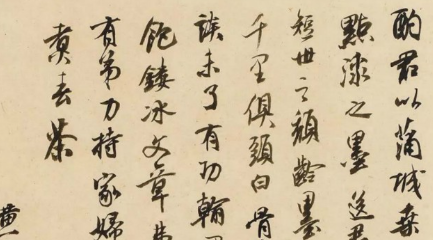 酌君以蒲城桑
點漆之墨送君
短世之頹齡墨
千里俱頭白骨
談未了有功翰
飽鏤冰文章費
有弟力持家婦
煮去茶
黄